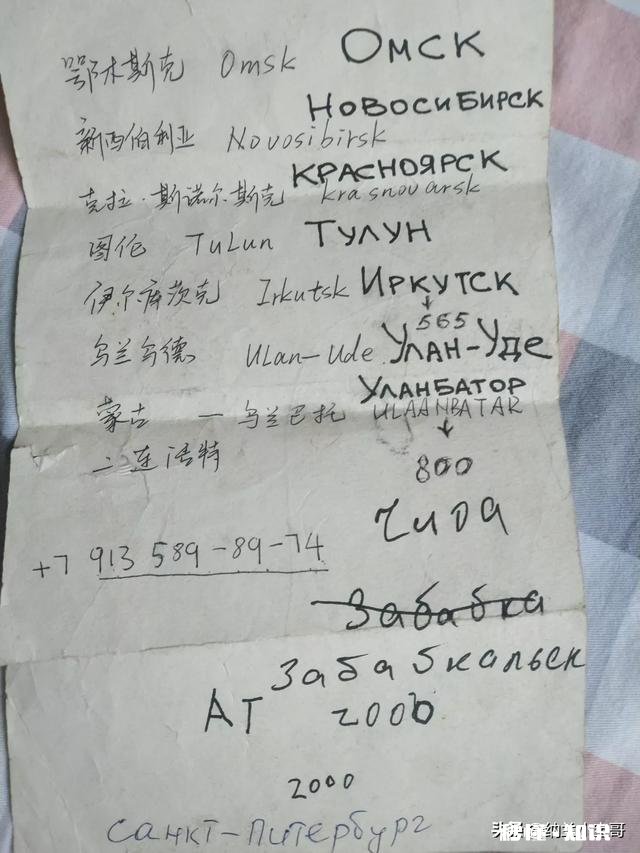 鄂木斯克 Omsk ОМСК
НОВОСИБИРСК
新西伯利亚 Novosibirsk
КРАСНОЯРСК
克拉·斯诺尔斯克 krasnovarsk
图伦 TuLun ТУЛУН
伊尔库茨克 Irkutsk ИРКУТСК
565
乌兰乌德 ULan-Ude УЛАН-УДЕ
УЛАНБАТОР
蒙古 — 乌兰巴托 ULAANBATAR
二连浩特
800
Чита
+7 913 589-89-74
Забабка
Забабкальск
АТ 2000
2000
Санкт-Питербург